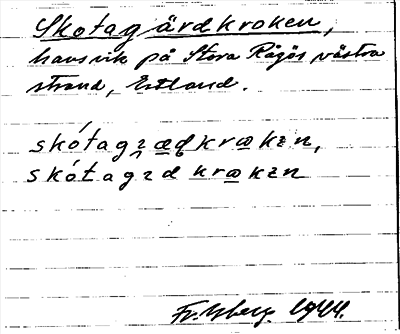 Skotagärdkroken,
havsvik på Stora Rågös västra
strand, Estland.
skótagꝛæɖkrꞷkɛn,
skótagꝛd krꞷkɛn
1944.